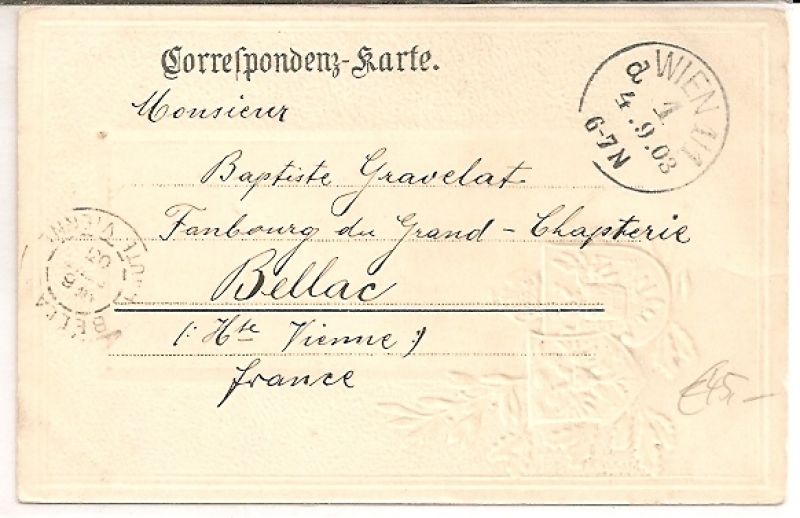 Correspondenz-Karte.
WIEN 1/1
d 1
4.9.03
6-7N
Monsieur
Baptiste Gravelat
Fanbourg du Grand-Chapterie
Bellac
(: Hte Vienne :)
france
BELLAC
HAUTE VIENNE
03
€45,-